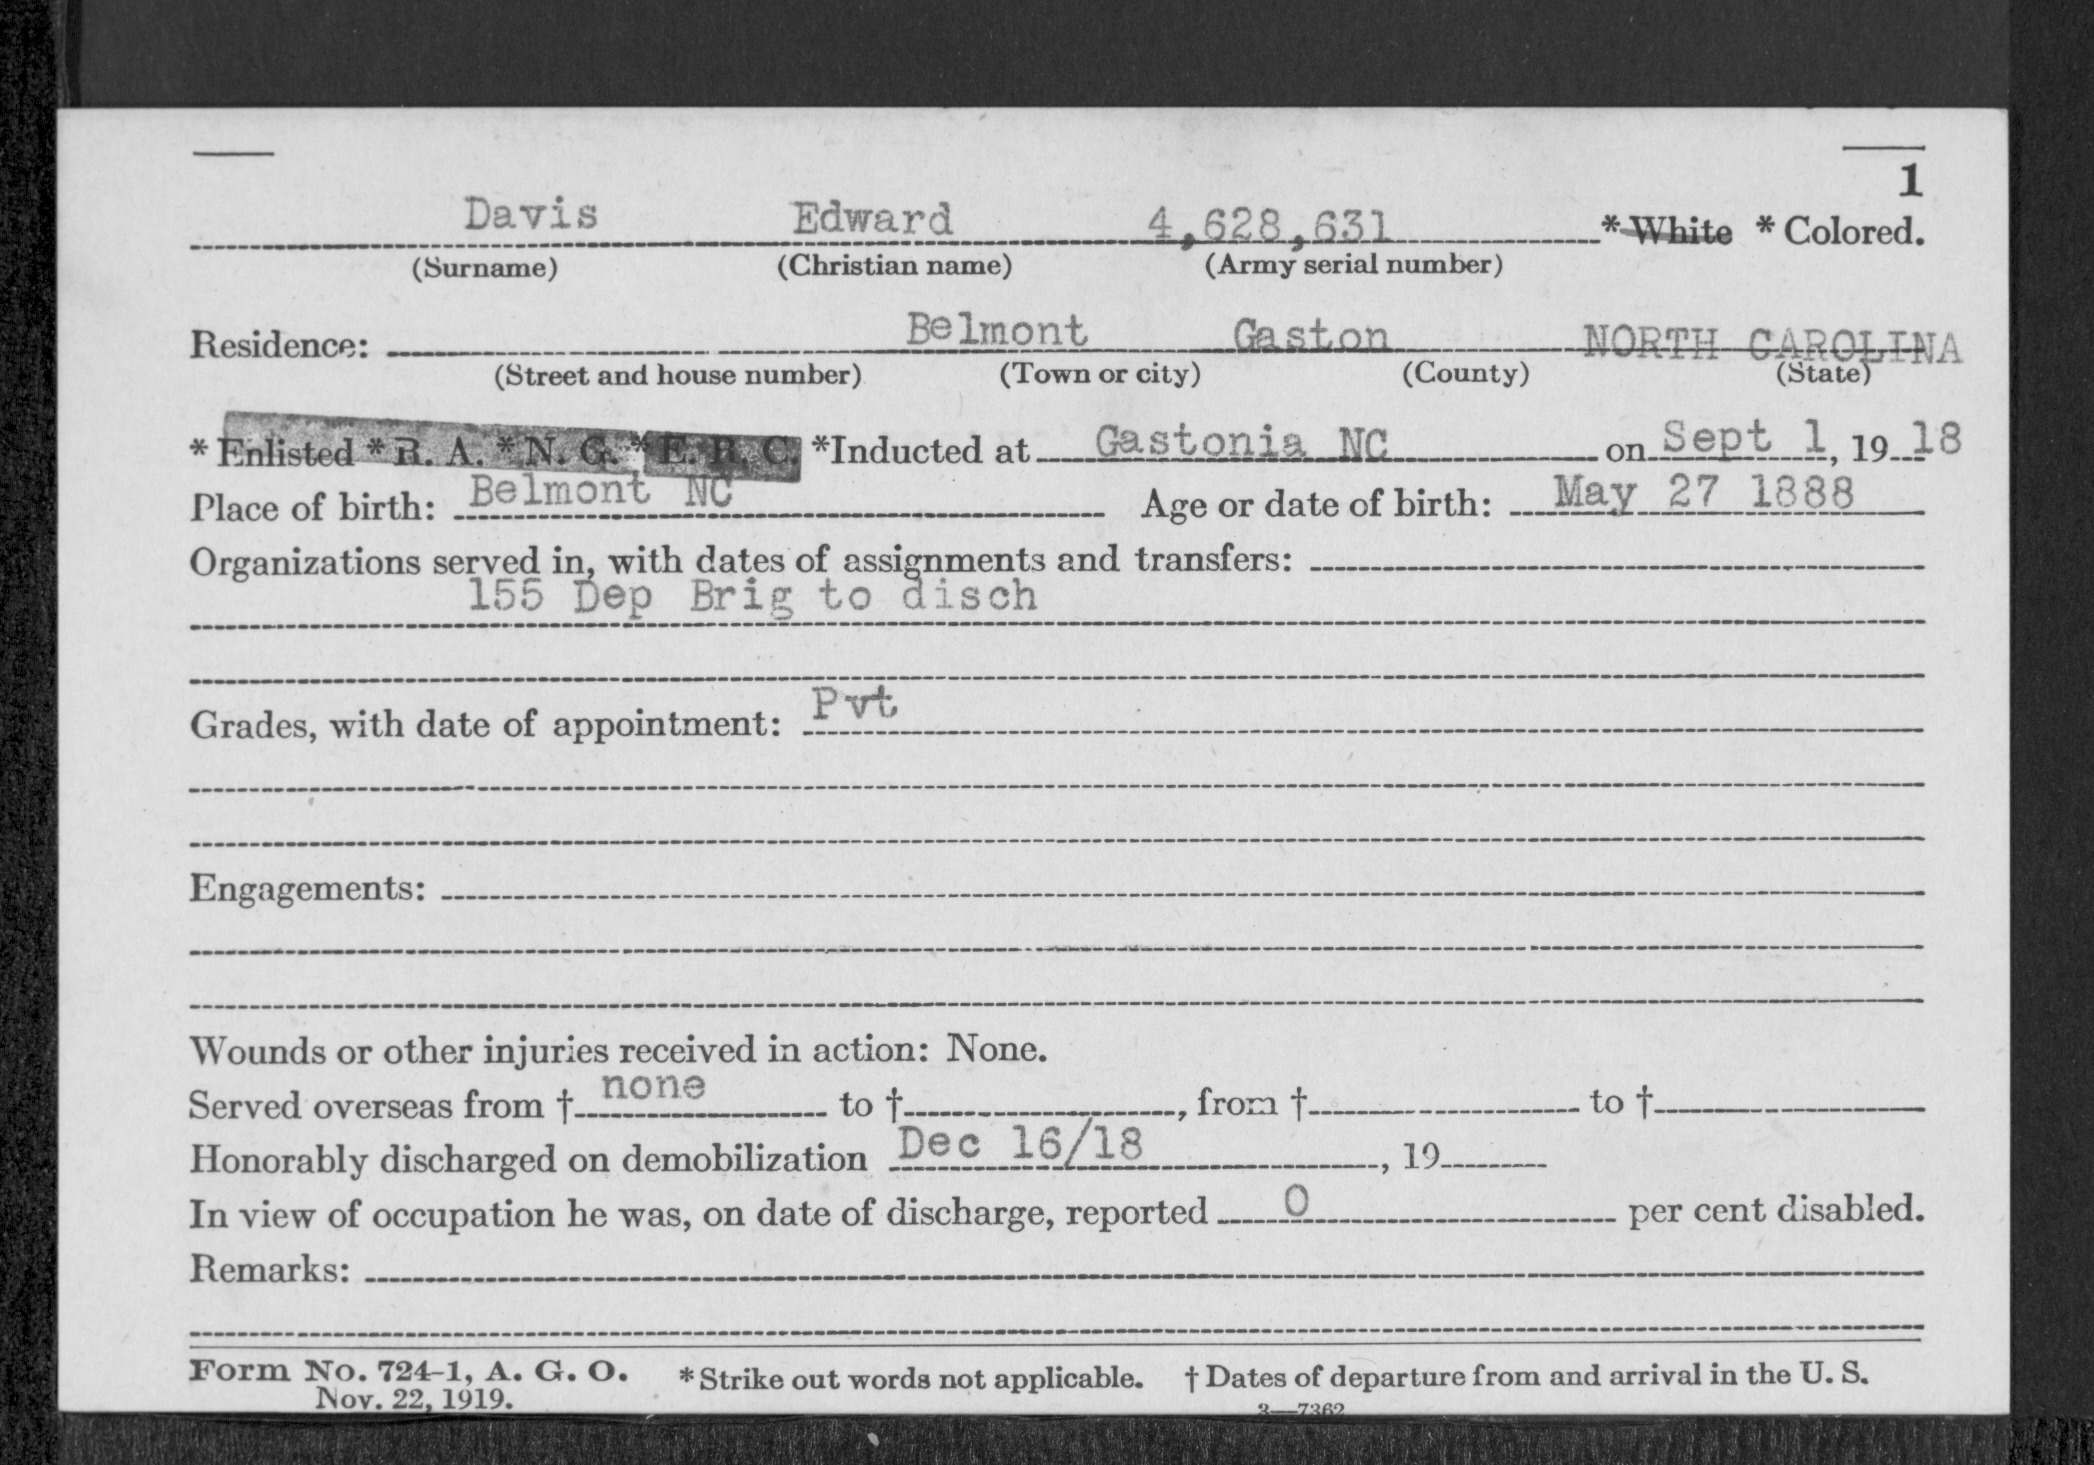 1
Davis Edward 4,628,631 * White * Colored.
(Surname) (Christian name) (Army serial number)
Belmont Gaston NORTH CAROLINA
Residence:
(Street and house number) (Town or city) (County) (State)
* Enlisted * R. A. * N. G. * E. R. C. *Inducted at Gastonia NC on Sept 1, 19 18
Place of birth: Belmont NC Age or date of birth: May 27 1888
Organizations served in, with dates of assignments and transfers:
155 Dep Brig to disch
Grades, with date of appointment: Pvt
Engagements:
Wounds or other injuries received in action: None.
Served overseas from † none to †, from † to †
Honorably discharged on demobilization Dec 16/18, 19
In view of occupation he was, on date of discharge, reported 0 per cent disabled.
Remarks:
Form No. 724-1, A. G. O. * Strike out words not applicable. † Dates of departure from and arrival in the U. S.
Nov. 22, 1919.
3—7362